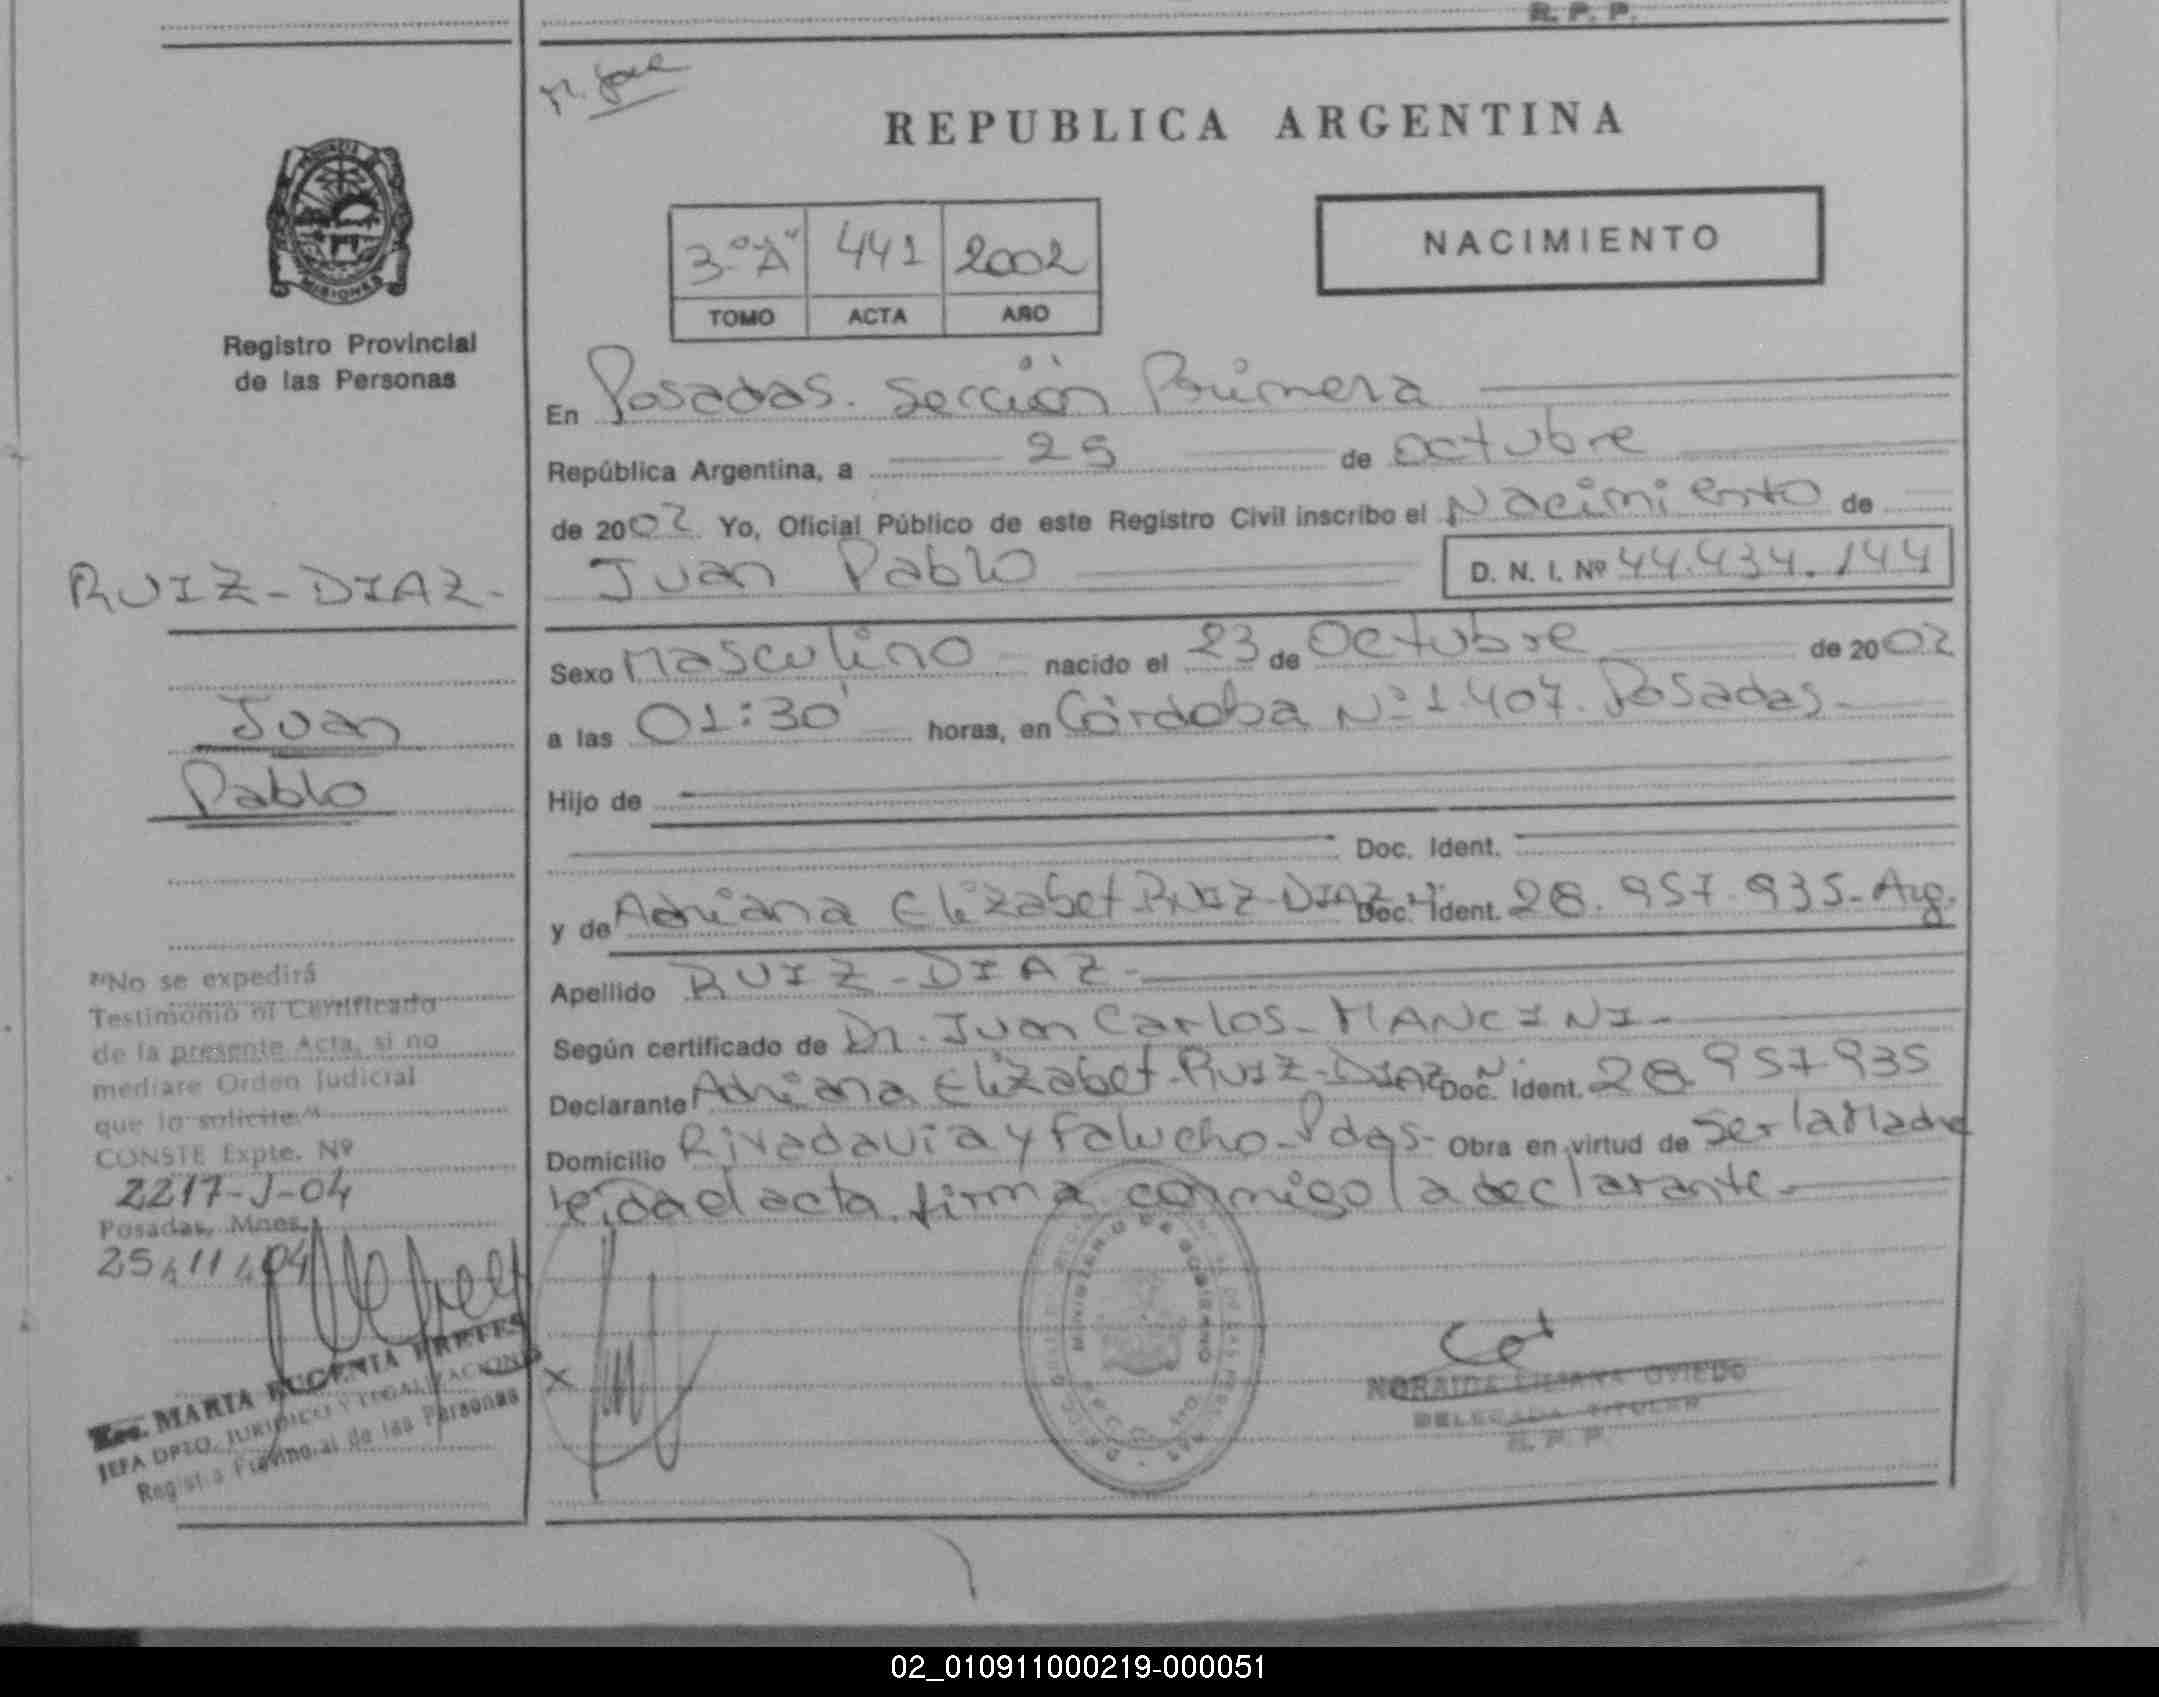 R. P. P.
REPUBLICA ARGENTINA
PROVINCIA
MISIONES
Registro Provincial
de las Personas
3-º"A" 441 2002
TOMO ACTA AÑO
NACIMIENTO
En Posadas. Sección Primera
República Argentina, a 25 de Octubre
de 2002 Yo, Oficial Público de este Registro Civil inscribo el Nacimiento de
Juan Pablo D. N. I. Nº 44.434.144
RUIZ-DIAZ-
Juan
Pablo
Sexo Masculino nacido el 23 de Octubre de 2002
a las 01:30' horas, en Córdoba Nº 1.407. Posadas-
Hijo de
Doc. Ident.
y de Adriana Elizabet RUIZ-DIAZ Doc. Ident. 28.957.935-Arg.
Apellido RUIZ-DIAZ-
Según certificado de Dr. Juan Carlos-MANCINI-
Declarante Adriana Elizabet-RUIZ-DIAZ Doc. Ident. 28.957.935
Domicilio Rivadavia y Falucho-Pdas- Obra en virtud de ser la Madre
leida el acta firma conmigo la declarante-
"No se expedirá
Testimonio ni Certificado
de la presente Acta, si no
mediare Orden Judicial
que lo solicite."
CONSTE Expte. Nº
2217-J-04
Posadas, Mnes.
25/11/04
MARIA EUGENIA FRETES
JEFA DPTO. JURIDICO Y LEGALIZACIONES
Registro Provincial de las Personas
X
MINISTERIO DE GOBIERNO
NORAIDA LILIANA OVIEDO
DELEGADA TITULAR
R. P. P.
02_010911000219-000051